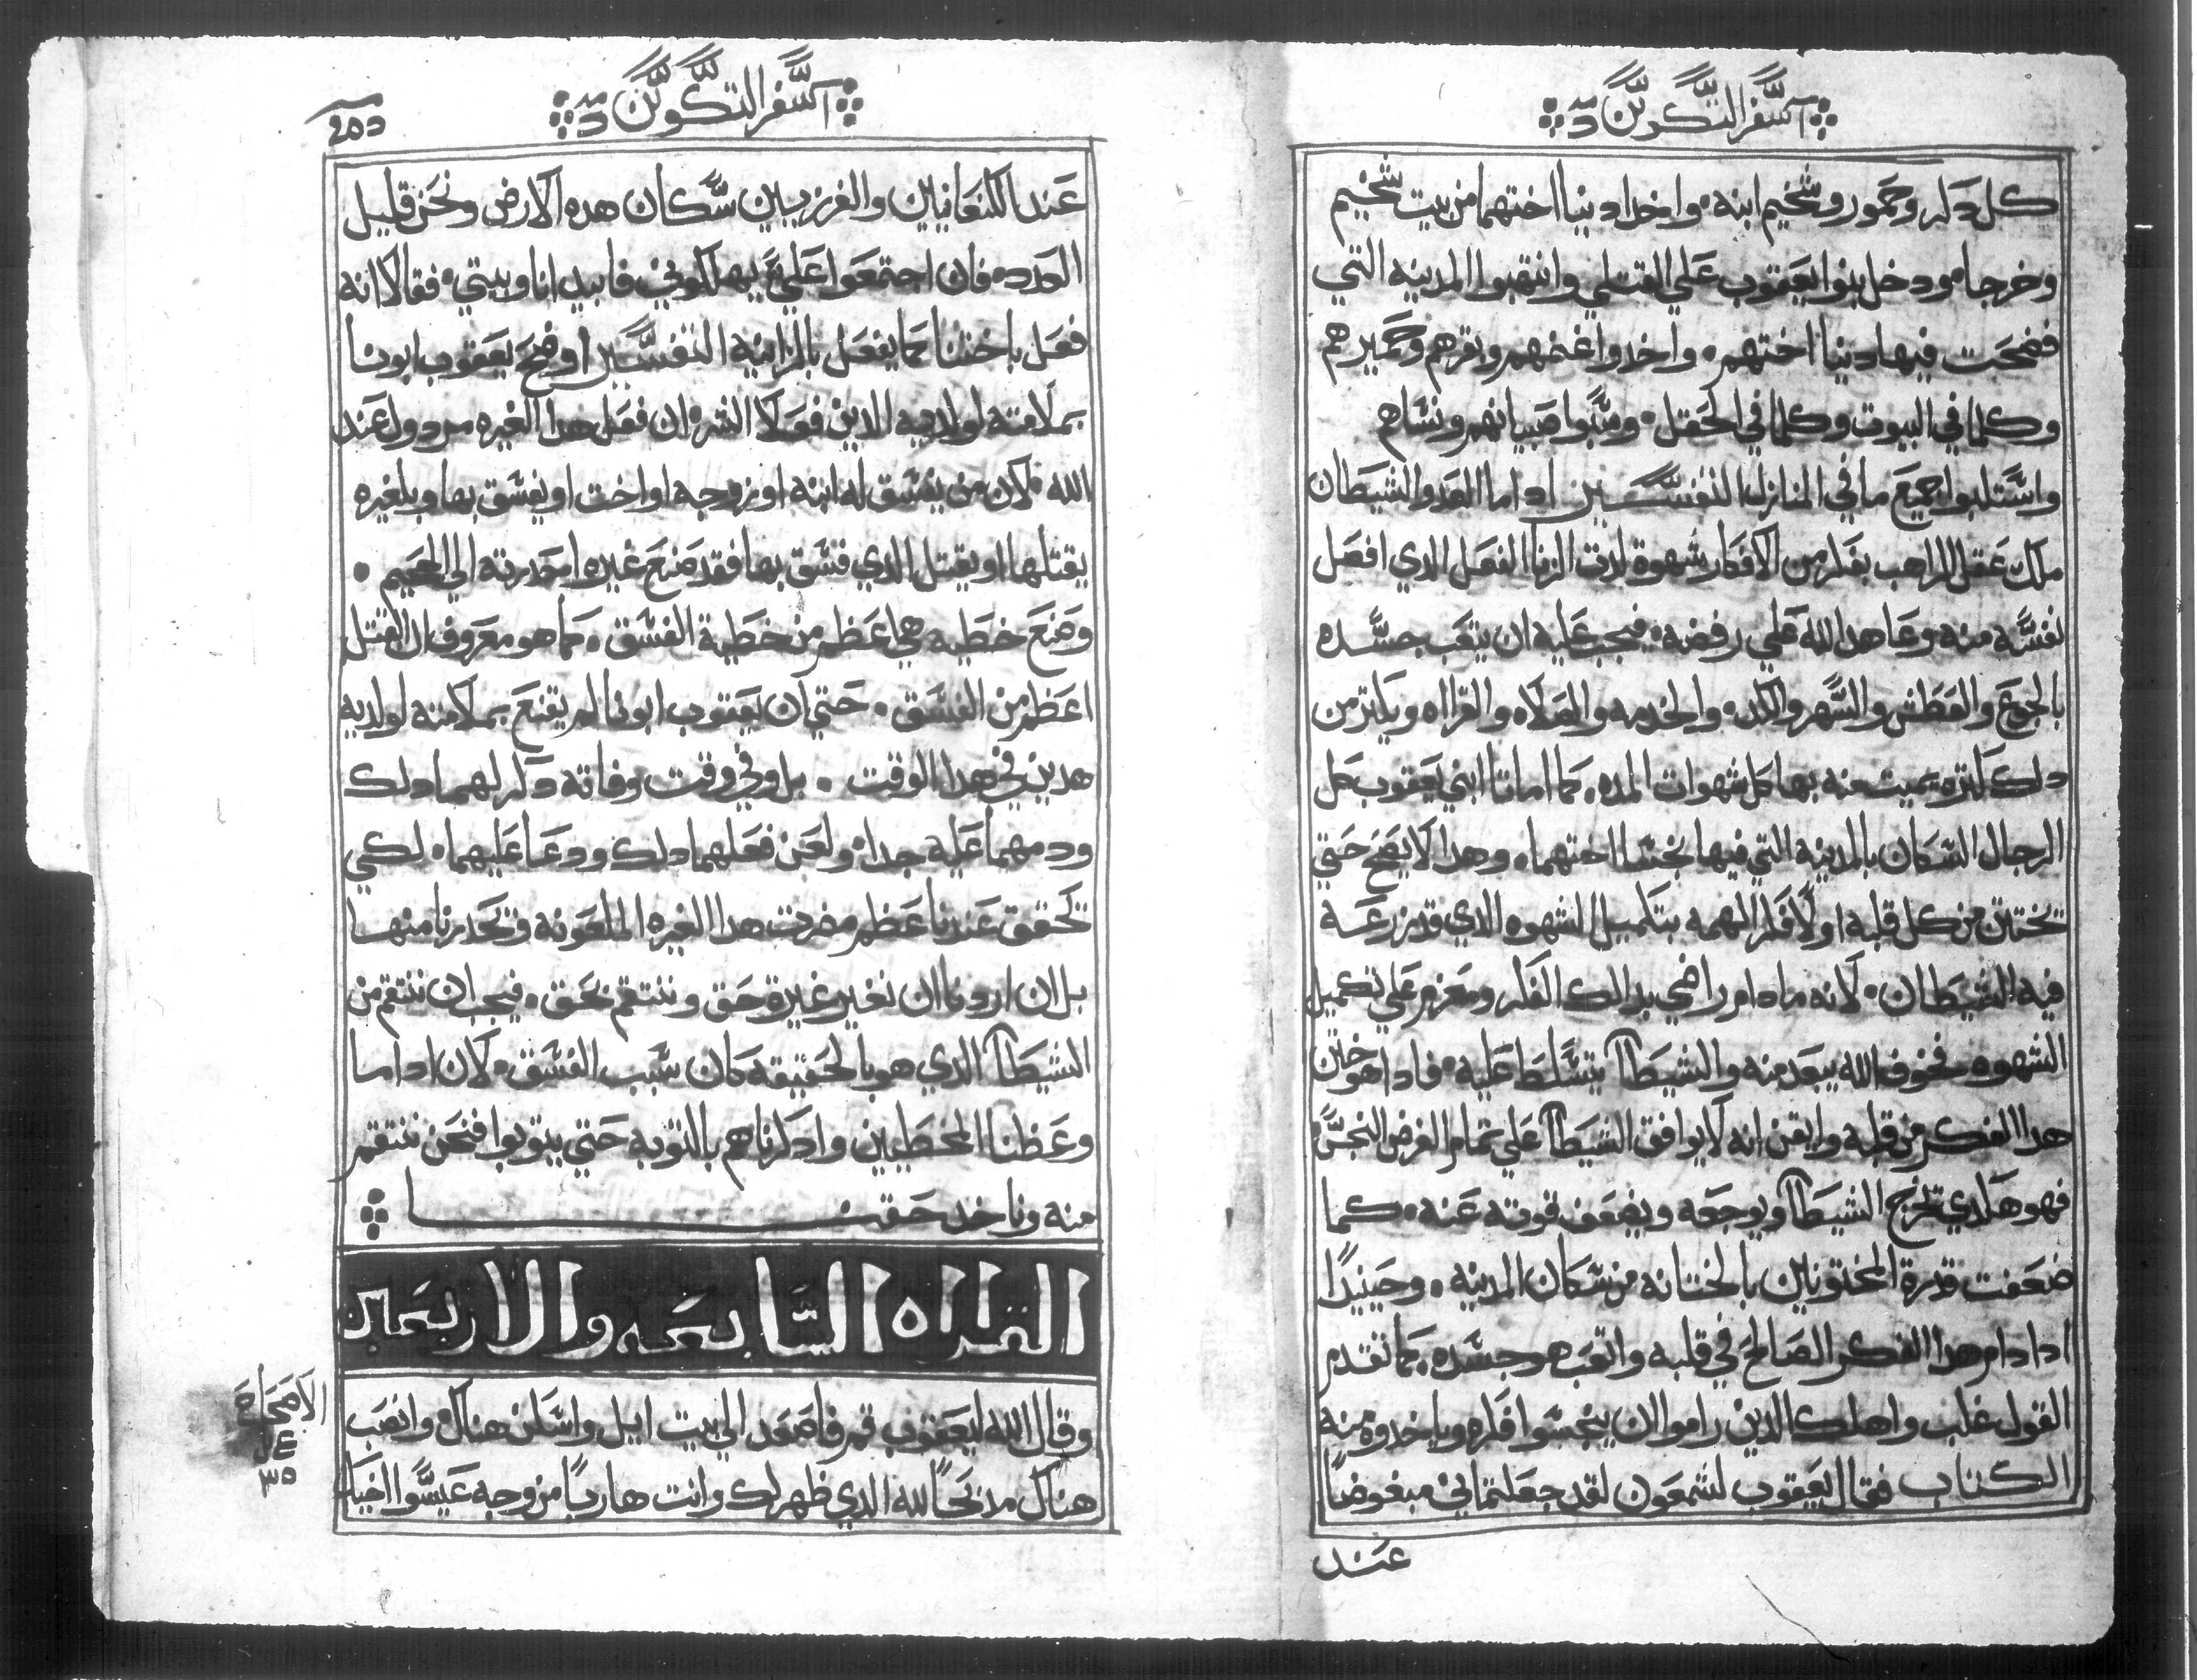 سفر التكوين
كل دكر وحمور وشخيم ابنه ۰ واخدا دينا اختهما من بيت شخيم
وخرجا ۰ ودخل بنوا يعقوب علي القتلي وانتهبوا المدينه التي
فضحت فيها دينا اختهم ۰ واخدوا غنمهم وبقرهم وحميرهم
وكلما في البيوت وكلما في الحقل ۰ وسبوا صبيانهم ونساهم
واستلبوا جميع ما في المنازل التفسير ادا ما العدو الشيطان
ملك عقل الراهب بفكر من الافكار شهوة لدة الزنا الفعل الدي افصل
نفسه منه وعاهد الله علي رفضه ۰ فيجب عليه ان يتعب جسده
بالجوع والعطش والسهر والكد ۰ والخدمه والصلاه والقرااه ويكتر من
دلك كتره يميت منه بها كل شهوات المده ۰ كما اماتا ابني يعقوب كل
الرجال السكان بالمدينه التي فيها نجسا اختهما ۰ وهدا لا يصح حتي
تختتن من كل قلبه اولا فكر الهمه بتكميل الشهوه الدي قد زرعه
فيه الشيطان ۰ لانه ما دام راضي بدالك الفكر ومعزم علي تكميل
الشهوه فخوف الله يبعد منه والشيطان يتسلط عليه ۰ فادا هو ختن
هدا الفكر من قلبه وايقن انه لا يوافق الشيطان علي تمام الغرض النجس
فهو هكدي تخرج الشيطان ويوجعه ويضعف قوته عنه ۰ كما
ضعفت قدرة المختونين بالختانه من سكان المدينه ۰ وحينيدا
ادا دام هدا الفكر الصالح في قلبه واتعب هو جسده كما تقدم
القول غلب واهلك الدين راموا ان ينجسوا فكره وياخدوه منه
الكتاب فقال يعقوب لشمعون لقد جعلتماني مبغوضا
عند
سفر التكوين
عند الكنعانيين والفرزيين سكان هده الارض ونحن قليل
العدد ۰ فان اجتمعوا علي يهلكوني فابيد انا وبيتي ۰ فقالا انه
فعل باختنا كما يفعل بالزانيه التفسير اوضح يعقوب ابونا
بملامته لولديه الدين فعلا الشر ان فعل هدا الغيره مردول عند
الله ۰ لان من يفسق له ابنه او زوجه او اخت او يفسق بها وبالغيره
يقتلها او يقتل الدي فسق بها فقد صنع غيره احدرته الي الجحيم ۰
وصنع خطيه هي اعظم من خطية الفسق ۰ كما هو معروف ان القتل
اعظم من الفسق ۰ حتي ان يعقوب ابونا لم يقنع بملامته لولديه
هدين في هدا الوقت ۰ بل وفي وقت وفاته دكر لهما دلك
ودمهما عليه جدا ۰ ولعن فعلهما دلك ودعا عليهما ۰ لكي
تحقق عندنا عظم مضرت هدا الغيره الملعونه وتحدرنا منها
بل ان اردنا ان نغير غيرة حق وننتقم بحق ۰ فيجب ان ننتقم من
الشيطان الدي هو بالحقيقه كان سبب الفسق ۰ لان ادا ما
وعظنا المخطيين وادكرناهم بالتوبه حتي يتوبوا فنحن ننتقم
منه وناخد حقنا
القراه السابعه والاربعين
وقال الله ليعقوب قم فاصعد الي بيت ايل واسكن هناك وانصب
هناك مدبحا لله الدي ظهر لك وانت هاربا من وجه عيسوا اخيك
الاصحاح
٣٥